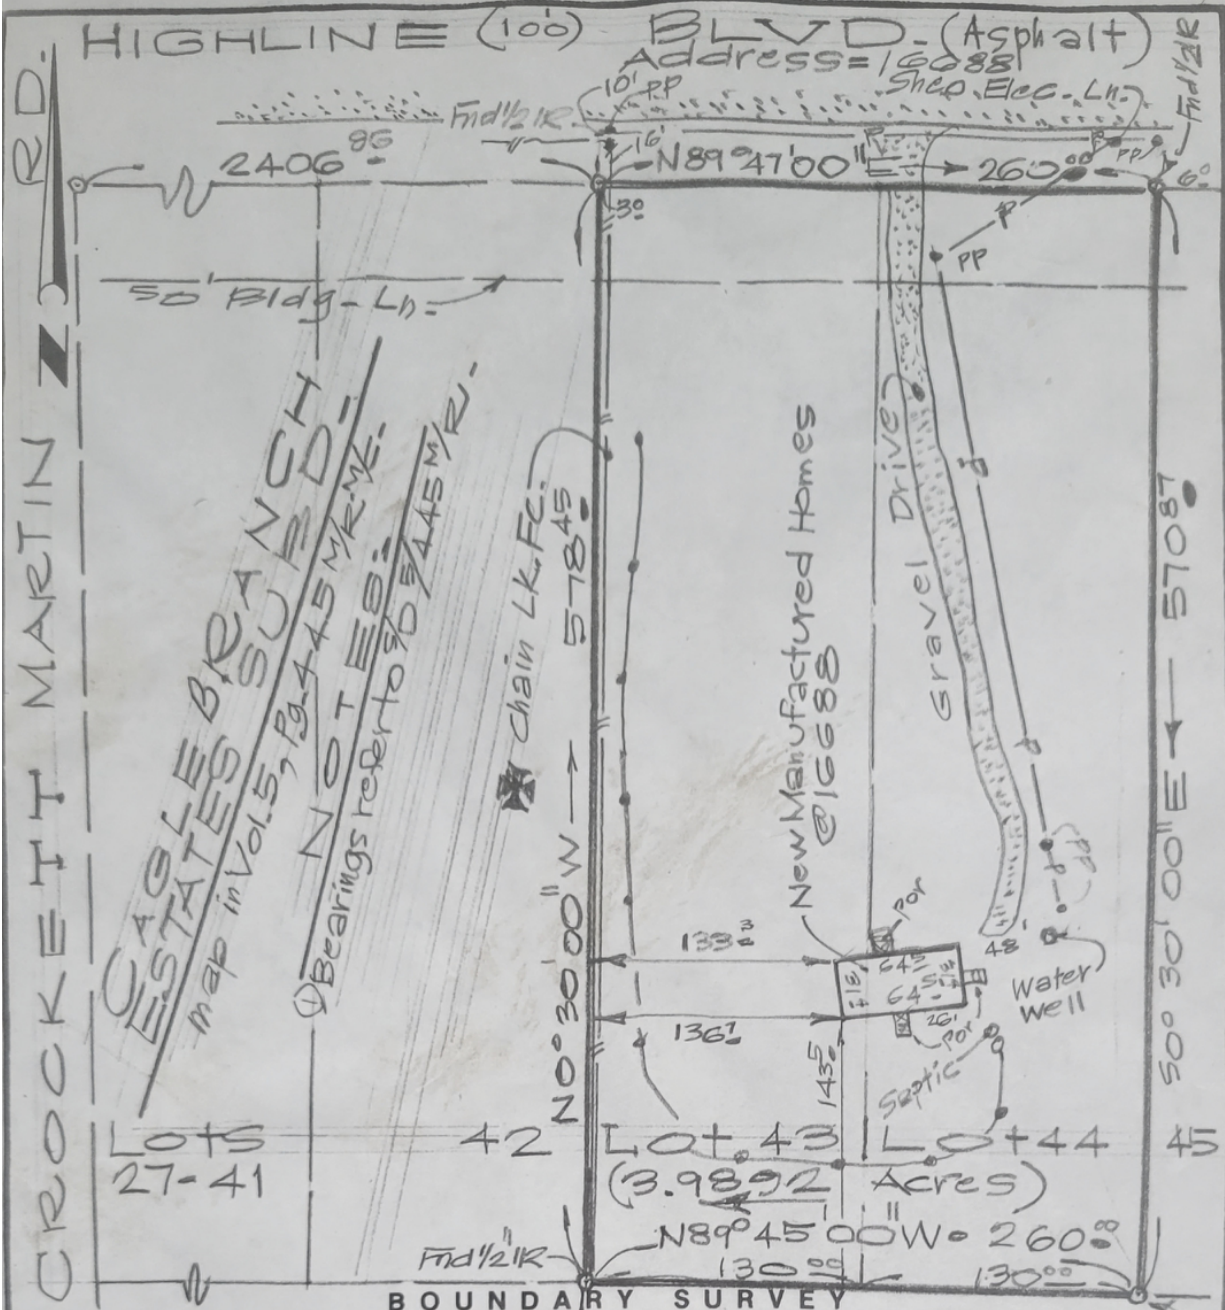 HIGHLINE (100') BLVD. (Asphalt)
Address=16688
10' PP
Elec. Ln.
Fnd 1/2 IR
Fnd 1/2 IR
2406 86
16'
N89°47'00"E
260 00
PP
6 0
3 0
PP
50' Bldg-Ln.
CROCKETT MARTIN RD.
N
CAGLE BRANCH
ESTATES SUBD-
map in Vol.5, Pg.445 M/R-M/C-
NOTES:
① Bearings refer to 5/445 M/R.-
Chain LK.Fc.
578 45
N0°30'00"W
New Manufactured Homes
@16688
Gravel Drive
570 87
S0°30'00"E
Por
133 3
64 5
48'
64 5
Water
Well
136 1
26'
Por
Septic
143 5
Lots
27-41
42
Lot 43
Lot 44
45
(3.9892 Acres)
N89°45'00"W 260 00
Fnd 1/2" IR
130 00
130 00
BOUNDARY SURVEY